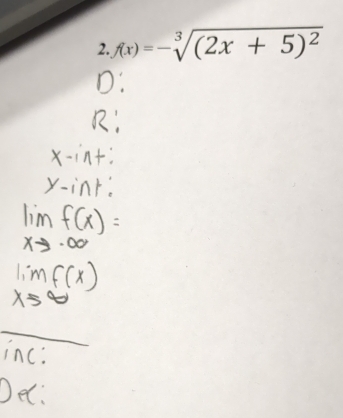 2. f(x) = -∛(2x + 5)²
D:
R:
x-int:
y-int:
lim f(x) =
x→ -∞
lim f(x)
x→ ∞
inc:
Dec: